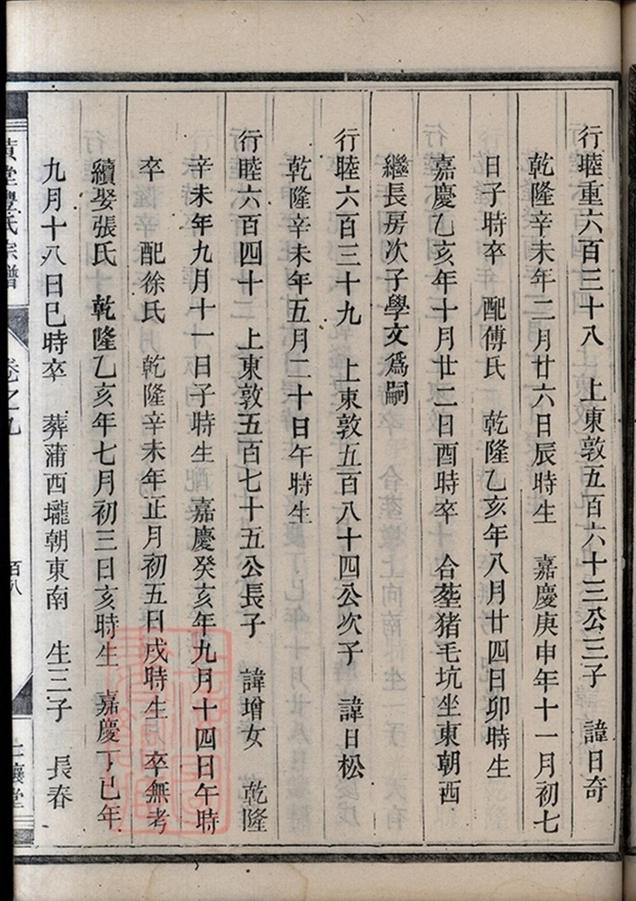 行睦重六百三十八 上東敦五百六十三公三子 諱日奇
乾隆辛未年二月廿六日辰時生 嘉慶庚申年十一月初七
日子時卒 配傅氏 乾隆乙亥年八月廿四日卯時生
嘉慶乙亥年十月廿二日酉時卒 合塟猪毛坑坐東朝西
繼長房次子學文爲嗣
行睦六百三十九 上東敦五百八十四公次子 諱日松
乾隆辛未年五月二十日午時生
行睦六百四十 上東敦五百七十五公長子 諱增女 乾隆
辛未年九月十一日子時生 嘉慶癸亥年九月十四日午時
卒 配徐氏 乾隆辛未年正月初五日戌時生 卒無考
續娶張氏 乾隆乙亥年七月初三日亥時生 嘉慶丁巳年
九月十八日巳時卒 葬蒲西壠朝東南 生三子 長春
堂豊氏宗譜 卷之九 百八 襄堂